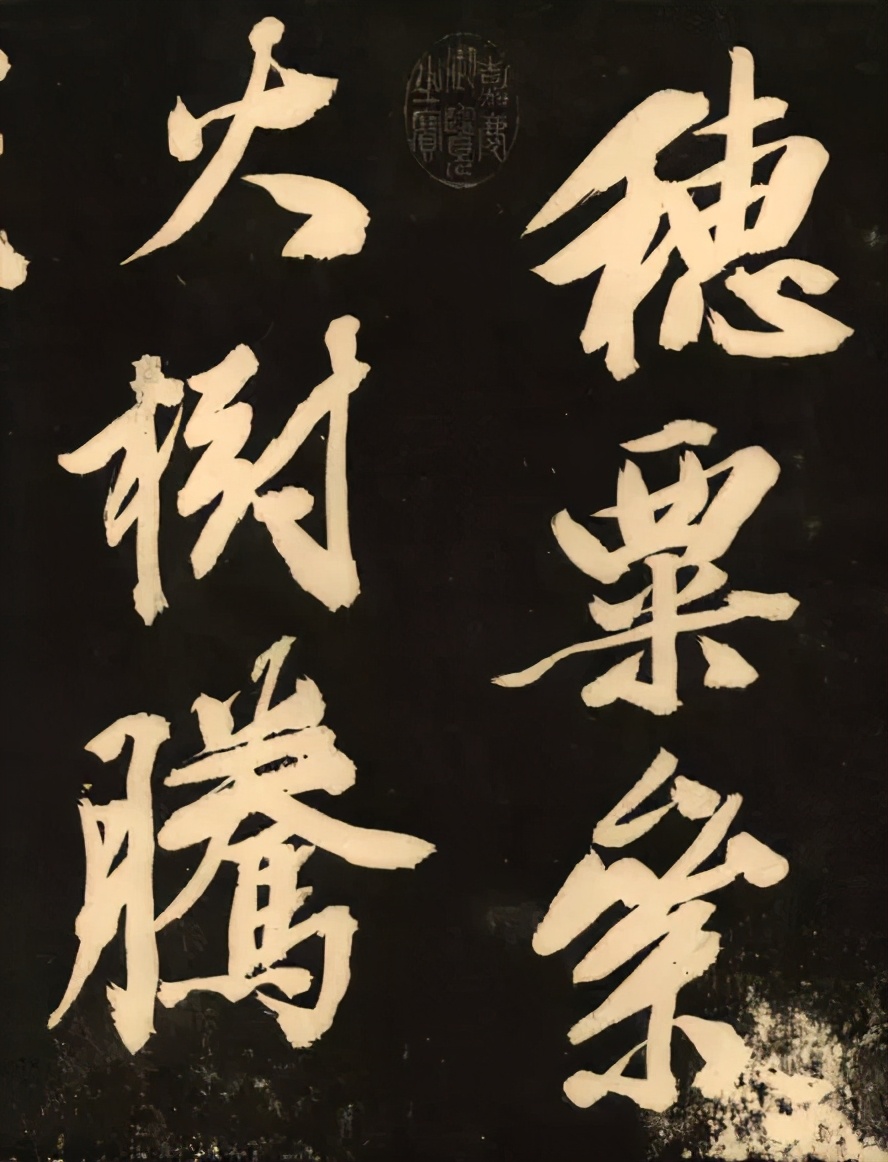 穗粟絫
火樹騰
嘉慶御覽之寶